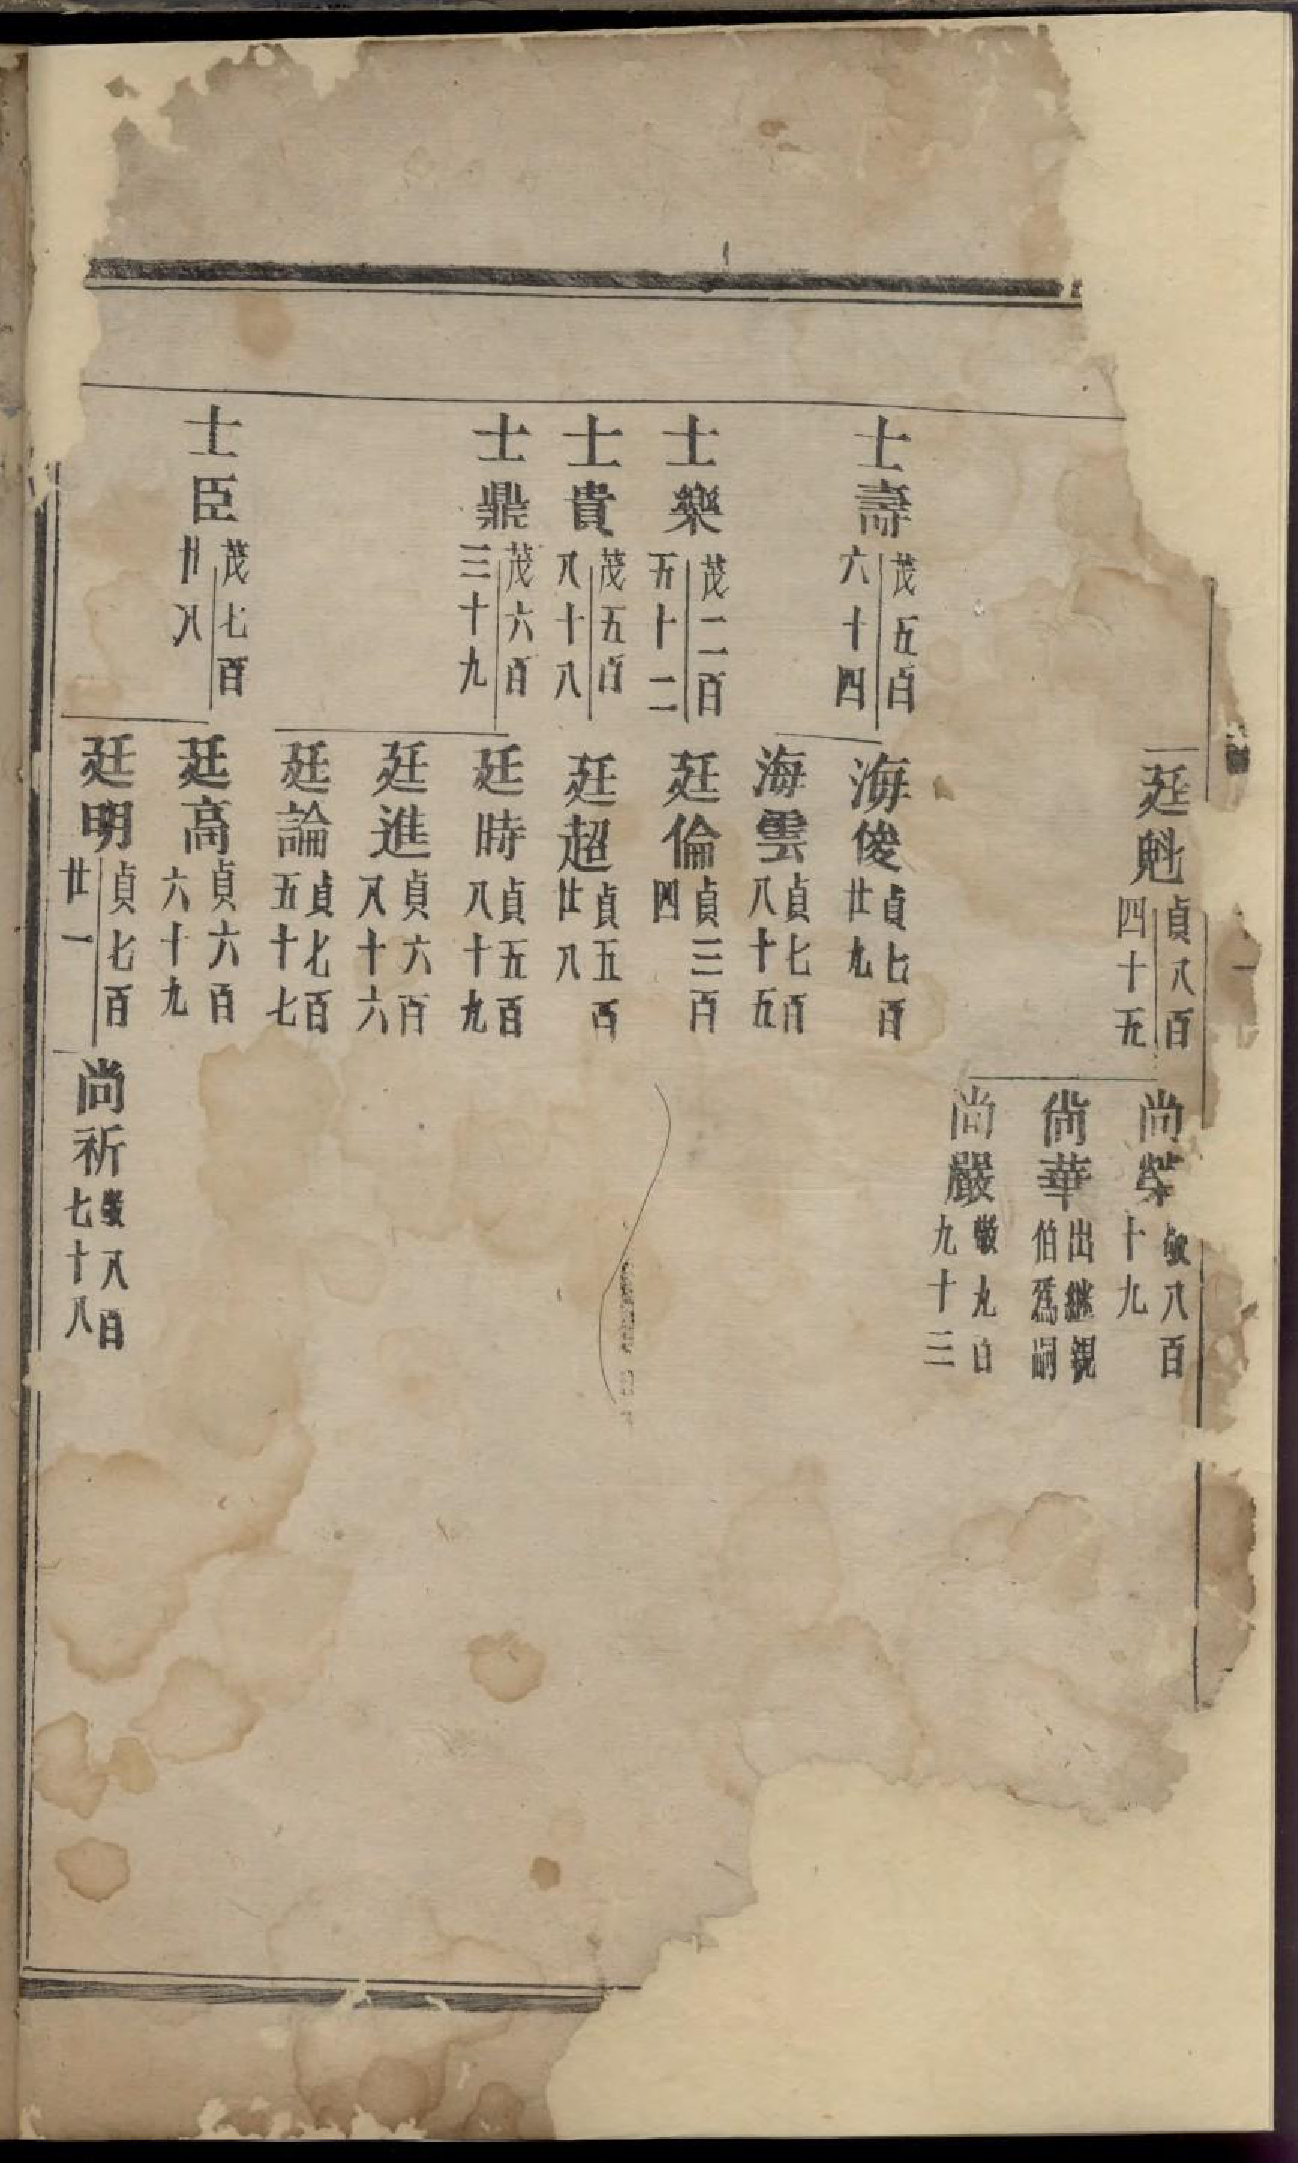 廷魁 貞八百四十五
尚榮 敬八百十九
尚華 出繼親伯爲嗣
尚嚴 敬九百九十三
士壽 茂五百六十四
海俊 貞七百廿九
海雲 貞七百八十五
士樂 茂二百五十二
廷倫 貞三百四
士貴 茂五百八十八
廷超 貞五百廿八
士鼎 茂六百三十九
廷時 貞五百八十九
廷進 貞六百八十六
廷論 貞七百五十七
士臣 茂七百卄八
廷高 貞六百六十九
廷明 貞七百廿一
尚祈 敬八百七十八